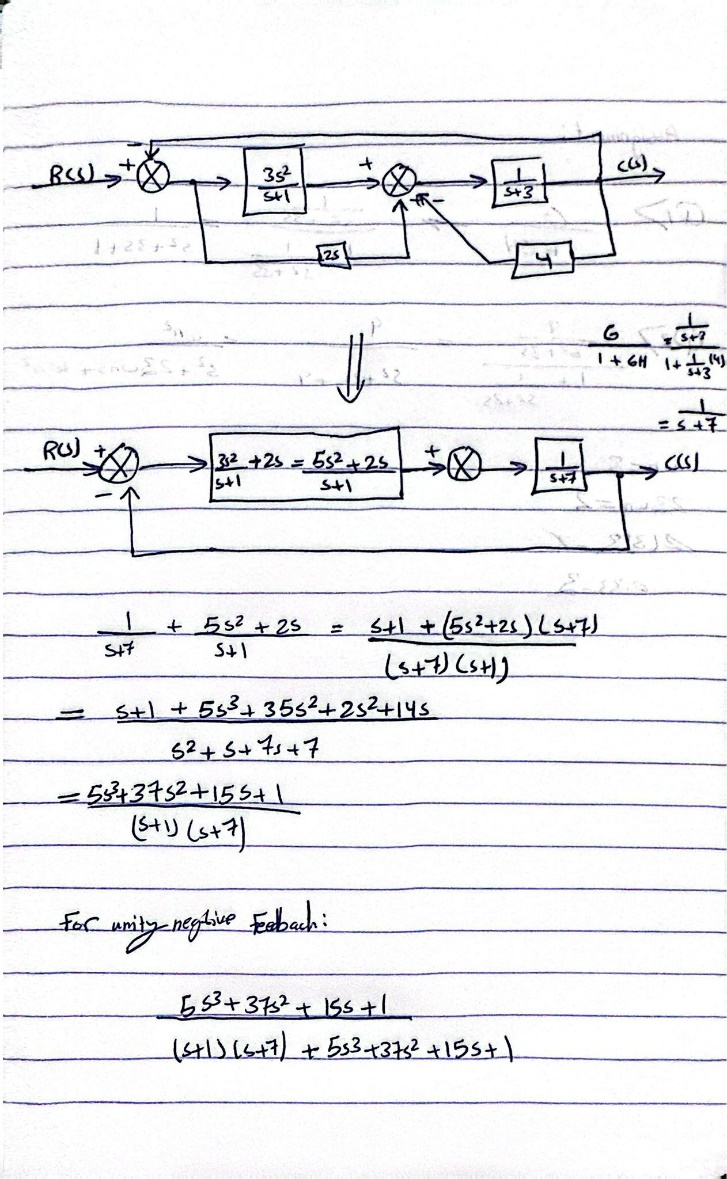 R(s) + - 3s²/(s+1) + - - 1/(s+3) C(s)
2s 4
G/(1 + GH) = (1/(s+3))/(1 + 1/(s+3) (4))
= 1/(s+7)
R(s) + - 3s²/(s+1) + 2s = (5s² + 2s)/(s+1) + 1/(s+7) C(s)
1/(s+7) + (5s² + 2s)/(s+1) = (s+1 + (5s²+2s)(s+7))/((s+7)(s+1))
= (s+1 + 5s³ + 35s² + 2s² + 14s)/(s² + s + 7s + 7)
= (5s³+37s²+15s+1)/((s+1)(s+7))
For unity negtive Feebach:
(5s³+37s² + 15s +1)/((s+1)(s+7) + 5s³ +37s² +15s+1)